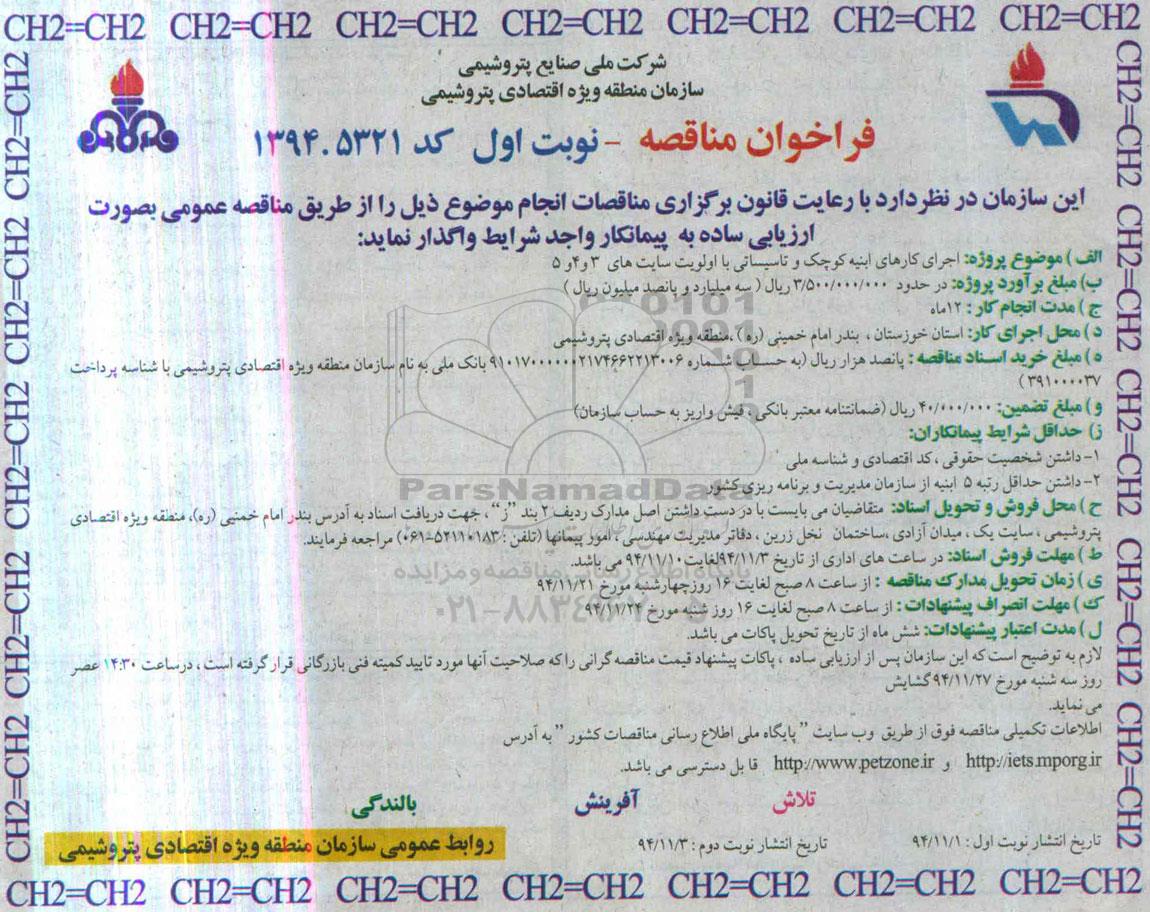 CH2=CH2 CH2=CH2 CH2=CH2 CH2=CH2 CH2=CH2 CH2=CH2 CH2=CH2
شرکت ملی صنایع پتروشیمی
سازمان منطقه ویژه اقتصادی پتروشیمی
فراخوان مناقصه - نوبت اول کد ۱۳۹۴.۵۳۲۱
این سازمان در نظردارد با رعایت قانون برگزاری مناقصات انجام موضوع ذیل را از طریق مناقصه عمومی بصورت
ارزیابی ساده به پیمانکار واجد شرایط واگذار نماید:
الف ) موضوع پروژه: اجرای کارهای ابنیه کوچک و تاسیساتی با اولویت سایت های ۳ و۴و ۵
ب) مبلغ برآورد پروژه: در حدود ۳/۵۰۰/۰۰۰/۰۰۰ ریال ( سه میلیارد و پانصد میلیون ریال )
ج ) مدت انجام کار : ۱۲ماه
د ) محل اجرای کار: استان خوزستان ، بندر امام خمینی (ره) .منطقه ویژه اقتصادی پتروشیمی
ه ) مبلغ خرید اسناد مناقصه : پانصد هزار ریال (به حساب شماره ۹۱۰۱۷۰۰۰۰۰۰۲۱۷۴۶۶۲۲۱۳۰۰۶ بانک ملی به نام سازمان منطقه ویژه اقتصادی پتروشیمی با شناسه پرداخت
۳۹۱۰۰۰۰۳۷ )
و ) مبلغ تضمین: ۴۰/۰۰۰/۰۰۰ ریال (ضمانتنامه معتبر بانکی ، فیش واریز به حساب سازمان)
ز) حداقل شرایط پیمانکاران:
۱- داشتن شخصیت حقوقی ، کد اقتصادی و شناسه ملی
۲- داشتن حداقل رتبه ۵ ابنیه از سازمان مدیریت و برنامه ریزی کشور
ح ) محل فروش و تحویل اسناد: متقاضیان می بایست با در دست داشتن اصل مدارک ردیف ۲ بند "ز" ، جهت دریافت اسناد به آدرس بندر امام خمنیی (ره)، منطقه ویژه اقتصادی
پتروشیمی ، سایت یک ، میدان آزادی ،ساختمان نخل زرین ، دفاتر مدیریت مهندسی ، امور پیمانها (تلفن : ۵۲۱۱۰۱۸۳-۰۶۱) مراجعه فرمایند.
ط ) مهلت فروش اسناد: در ساعت های اداری از تاریخ ۹۴/۱۱/۳لغایت۹۴/۱۱/۱۰ می باشد.
ی ) زمان تحویل مدارک مناقصه : از ساعت ۸ صبح لغایت ۱۶ روزچهارشنبه مورخ ۹۴/۱۱/۲۱
ک ) مهلت انصراف پیشنهادات : از ساعت ۸ صبح لغایت ۱۶ روز شنبه مورخ ۹۴/۱۱/۲۴
ل ) مدت اعتبار پیشنهادات: شش ماه از تاریخ تحویل پاکات می باشد.
لازم به توضیح است که این سازمان پس از ارزیابی ساده ، پاکات پیشنهاد قیمت مناقصه گرانی را که صلاحیت آنها مورد تایید کمیته فنی بازرگانی قرار گرفته است ، درساعت ۱۴:۳۰ عصر
روز سه شنبه مورخ ۹۴/۱۱/۲۷گشایش
می نماید.
اطلاعات تکمیلی مناقصه فوق از طریق وب سایت " پایگاه ملی اطلاع رسانی مناقصات کشور " به آدرس
http://iets.mporg.ir و http://www.petzone.ir قابل دسترسی می باشد.
تلاش آفرینش بالندگی
تاریخ انتشار نوبت اول : ۹۴/۱۱/۱ تاریخ انتشار نوبت دوم : ۹۴/۱۱/۳
روابط عمومی سازمان منطقه ویژه اقتصادی پتروشیمی
CH2=CH2 CH2=CH2 CH2=CH2 CH2=CH2 CH2=CH2 CH2=CH2 CH2=CH2
CH2=CH2 CH2=CH2 CH2=CH2 CH2=CH2 CH2=CH2
CH2=CH2 CH2=CH2 CH2=CH2 CH2=CH2 CH2=CH2
ParsNamadData